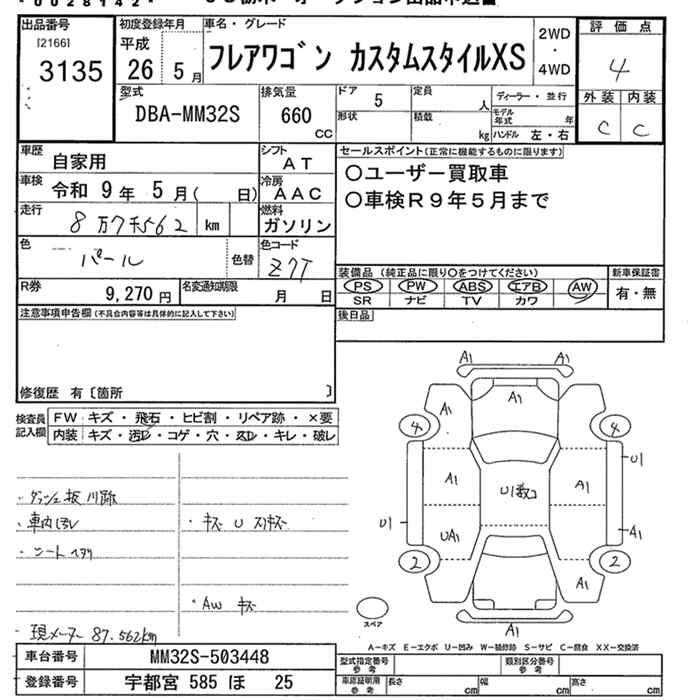 出品番号
[2166]
3135
初度登録年月
平成
26 5月
車名・グレード
フレアワゴン カスタムスタイルXS
2WD
・
4WD
評価点
4
外装 内装
C C
型式
DBA-MM32S
排気量
660
cc
ドア 5
形状
定員 人
積載 kg
ディーラー・並行
モデル年式 年
ハンドル 左・右
車歴
自家用
シフト
AT
車検
令和 9年 5月( 日)
冷房
AAC
走行
8万7千562 km
燃料
ガソリン
色
パール
色替
色コード
Z7T
R券
9,270円
名変通知期限
月 日
セールスポイント(正常に機能するものに限ります)
○ユーザー買取車
○車検R9年5月まで
装備品 (純正品に限り○をつけてください)
PS PW ABS エアB AW
SR ナビ TV カワ
新車保証書
有・無
後日品
注意事項申告欄(不具合内容等は具体的に記入して下さい)
修復歴 有〔箇所 〕
検査員記入欄
FW キズ・飛石・ヒビ割・リペア跡・×要
内装 キズ・汚レ・コゲ・穴・スレ・キレ・破レ
・車内
・キズ U スリキズ
・シート
・AW キズ
現メーター 87.562km
A1 A1
A1
A1 A1
4 4
U1
A1 A1
U1
UA1
A1
2 2
A1
A1
スペア
A-キズ E-エクボ U-凹み W-補修跡 S-サビ C-腐食 XX-交換済
車台番号 MM32S-503448
登録番号 宇都宮 585 ほ 25
型式指定番号 参考
類別区分番号 参考
車庫証明用 参考
長さ cm 幅 cm 高さ cm